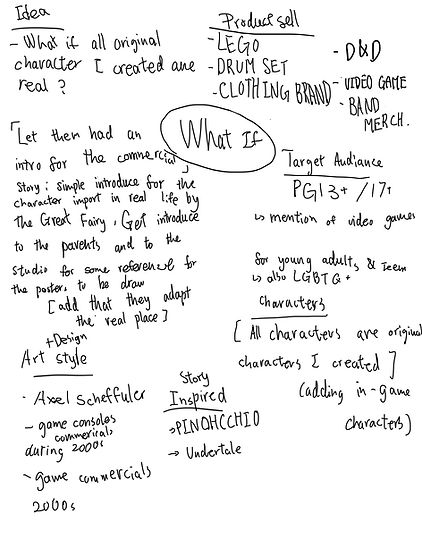 Idea
- What if all original
character I created are
real ?
Product sell
- LEGO
- DRUM SET
- CLOTHING BRAND
- D&D
- VIDEO GAME
- BAND
MERCH.
What If
「Let them had an
intro for the commercial」
Story : simple introduce for the
character import in real life by
The Great Fairy, Get introduce
to the parents and to the
studio for some reference for
the posters to be draw
[add that they adapt
the real place]
Target Audiance
PG13+ / 17+
↳ mention of video games
for young adults & Teens
↳ also LGBTQ+
Characters
[ All characters are original
characters I created ]
(adding in-game
characters)
+Design
Art style
· Axel Scheffuler
- game consoles
commericals
during 2000s
- game commercials
2000s
Story
Inspired
→PINOHCCHIO
→ Undertale